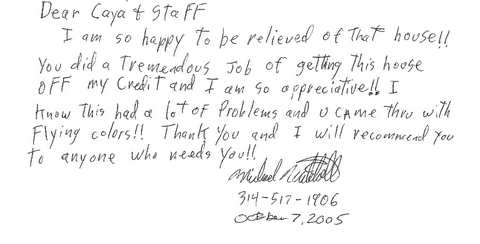 Dear Caya & Staff
I am so happy to be relieved of That house!!
You did a Tremendous Job of getting This house
OFF my Credit and I am so appreciative!! I
Know This had a lot of Problems and u came thru with
Flying colors!! Thank You and I will recommend you
To anyone who needs You!!
Michael
314-517-1906
October 7, 2005